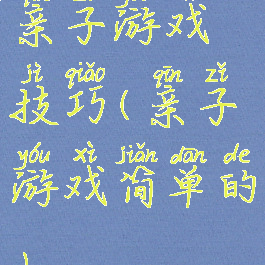 亲子游戏
jì qiǎo qīn zǐ
技巧(亲子
yóu xì jiǎn dān de
游戏简单的
)